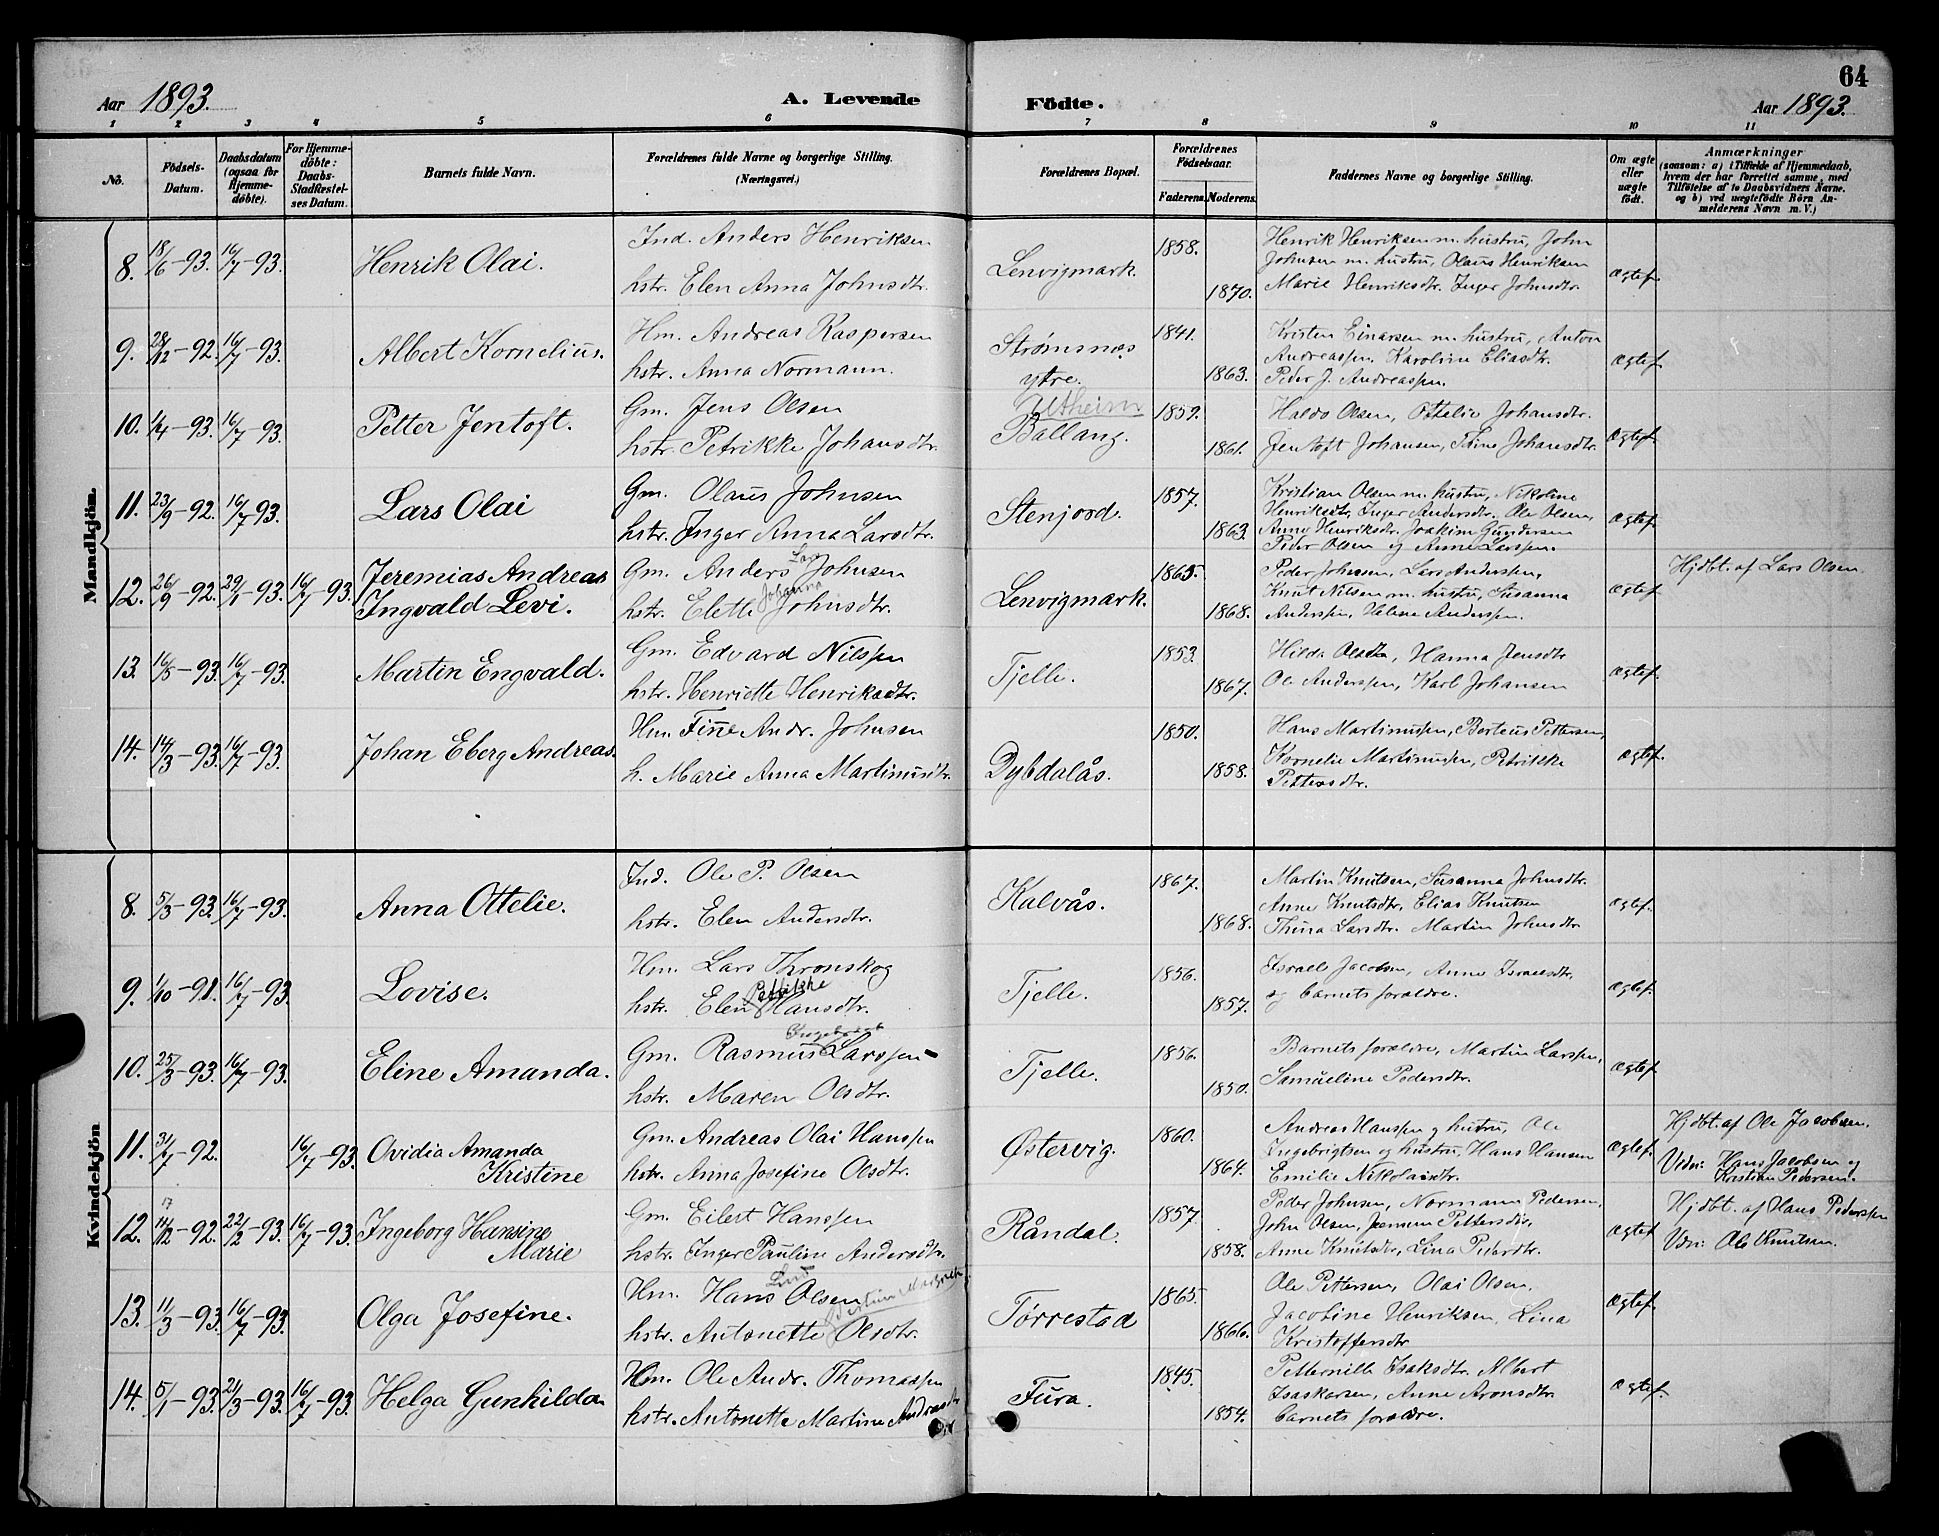 64
Aar 1893. A. Levende Födte. Aar 1893.
1 2 3 4 5 6 7 8 9 10 11
No. Födsels-Datum. Daabsdatum (ogsaa för Hjemmedöbte). For Hjemmedöbte: Daabs-Stadfæstelses Datum. Barnets fulde Navn. Forældrenes fulde Navne og borgerlige Stilling. (Næringsvei.) Forældrenes Bopæl. Forældrenes Födselsaar. Faderens. Moderens. Faddernes Navne og borgerlige Stilling. Om ægte eller uægte født. Anmærkninger (saasom: a) i Tilfælde af Hjemmedaab, hvem der har forrettet samme, med Tilföielse af to Daabsvidners Navne, og b) ved uægtefödte Börn Anmelderens Navn m. V.)
Mandkjön.
8. 18/6-93. 16/7-93. Henrik Olai. Ind. Anders Henriksen
hstr. Elen Anna Johnsdtr. Lenvigmark. 1858. 1870. Henrik Henriksen m. hustru, John
Johnsen m. hustru, Olaus Henriksen
Marie Henriksdtr. Inger Johnsdtr. Ægtef.
9. 28/12-92. 16/7-93. Albert Kornelius. Hm. Andreas Kaspersen
hstr. Anna Normann. Strømsnes
ytre. 1841. 1863. Kristen Einarsen m. hustru, Anton
Andreassen. Karoline Eliasdtr.
Peder J. Andreassen. Ægtef.
10. 1/4-93. 16/7-93. Petter Jentoft. Gm. Jens Olsen
hstr. Petrikke Johansdtr. Utheim
Ballang. 1859. 1861. Haldo Olsen, Ottelie Johansdtr.
Jentoft Johansen, Trine Johansdtr. Ægtef.
11. 23/9-92. 16/7-93. Lars Olai Gm. Olaus Johnsen
hstr. Inger Anna Larsdtr. Stenjord. 1857. 1863. Kristian Olsen m. hustru, Nikoline
Henriksdtr, Inger Andersdtr. Ole Olsen,
Anne Henriksdtr. Joakim Gundersen
Peder Olsen og Anne Larssen. Ægtef.
12. 26/9-92. 29/1-93. 16/7-93. Jeremias Andreas
Ingvald Levi. Gm. Anders Johnsen
hstr. Elette Johanna Johnsdtr. Lenvigmark. 1865. 1868. Peder Johnsen, Lars Anderssen,
Knut Nilsen m. hustru, Susanna
Anderssen, Helene Anderssen. Ægtef. Hjdbt. af Lars Olsen
13. 16/5-93. 16/7-93. Martin Engvald. Gm. Edvard Nilssen
hstr. Henriette Henriksdtr. Tjelle. 1853. 1867. Hilda Olsdtr, Hanna Jensdtr
Ole Anderssen, Karl Johansen Ægtef.
14. 14/3-93. 16/7-93. Johan Eberg Andreas. Hm. Fine Andr. Johnsen
h. Marie Anna Martinusdtr. Dybdalås. 1850. 1858. Hans Martinussen, Berteus Pettersen,
Kornelie Martinussen, Petrikke
Pettersdtr. Ægtef.
Kvindekjön
8. 5/3-93. 16/7-93. Anna Ottelie. Ind. Ole P. Olsen
hstr. Elen Andersdtr. Kalvås. 1867. 1868. Martin Knutsen, Susanna Johnsdtr.
Anne Knutsdtr, Elias Knutsen
Thina Larsdtr. Martin Johnsdtr Ægtef.
9. 1/10-91. 16/7-93. Lovise. Hm. Lars Thronskog
hstr. Elen Hansdtr. Tjelle. 1856. 1857. Israel Jacobsen, Anne Israelsdtr,
og barnets forældre. Ægtef.
10. 25/3-93. 16/7-93. Eline Amanda. Gm. Rasmus Larssen
hstr. Maren Olsdtr. Tjelle. 1856. 1850. Barnets forældre, Martin Larssen,
Samueline Pedersdtr. Ægtef.
11. 31/7-92. 16/7-93. Ovidia Amanda
Kristine Gm. Andreas Olai Hanssen
hstr. Anna Josefine Olsdtr. Østervig. 1860. 1864. Andreas Hanssen og hustru, Ole
Ingebrigtsen og hustru, Hans Hansen
Emilie Nikolaisdtr. Ægtef. Hjdbt. af Ole Jacobsen.
Vidn: Hans Jacobsen og
Kristian Pedersen.
12. 11/12-92. 22/2-93. 16/7-93. Ingeborg Hansine
Marie Gm. Eilert Hanssen
hstr. Inger Pauline Andersdtr. Råndal. 1857. 1858. Peder Johnsen, Normann Pedersen,
John Olsen, Pettersdtr,
Anne Knutsdtr, Lina Pedersdtr. Ægtef Hjdbt. af Hans Pederssen
Vdn: Ole Knutsen.
13. 11/3-93. 16/7-93. Olga Josefine. Hm. Hans Olsen
hstr. Antonette Olsdtr. Tørrestad 1865. 1866. Ole Pettersen, Olai Olsen.
Jacobine Henriksen, Lina
Kristoffersdtr Ægtef.
14. 5/1-93. 21/3-93. 16/7-93. Helga Gunhilda Hm. Ole Andr. Thomassen
hstr. Antonette Martine Andreasdtr Fura. 1845. 1854. Petternille Isaksdtr. Albert
Isaskarsen, Anne Aronsdtr.
barnets forældre. Ægtef.